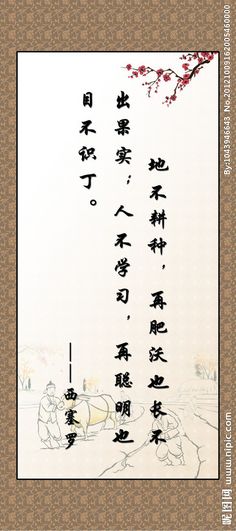 地不耕种，再肥沃也长不
出果实；人不学习，再聪明也
目不识丁。
——西塞罗
By:1043946643 No.20121009162005460000
昵图网 www.nipic.com